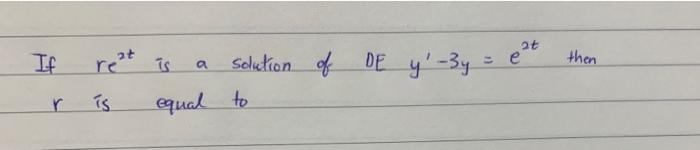 If re²ᵗ is a solution of DE y' -3y = e²ᵗ then
r is equal to